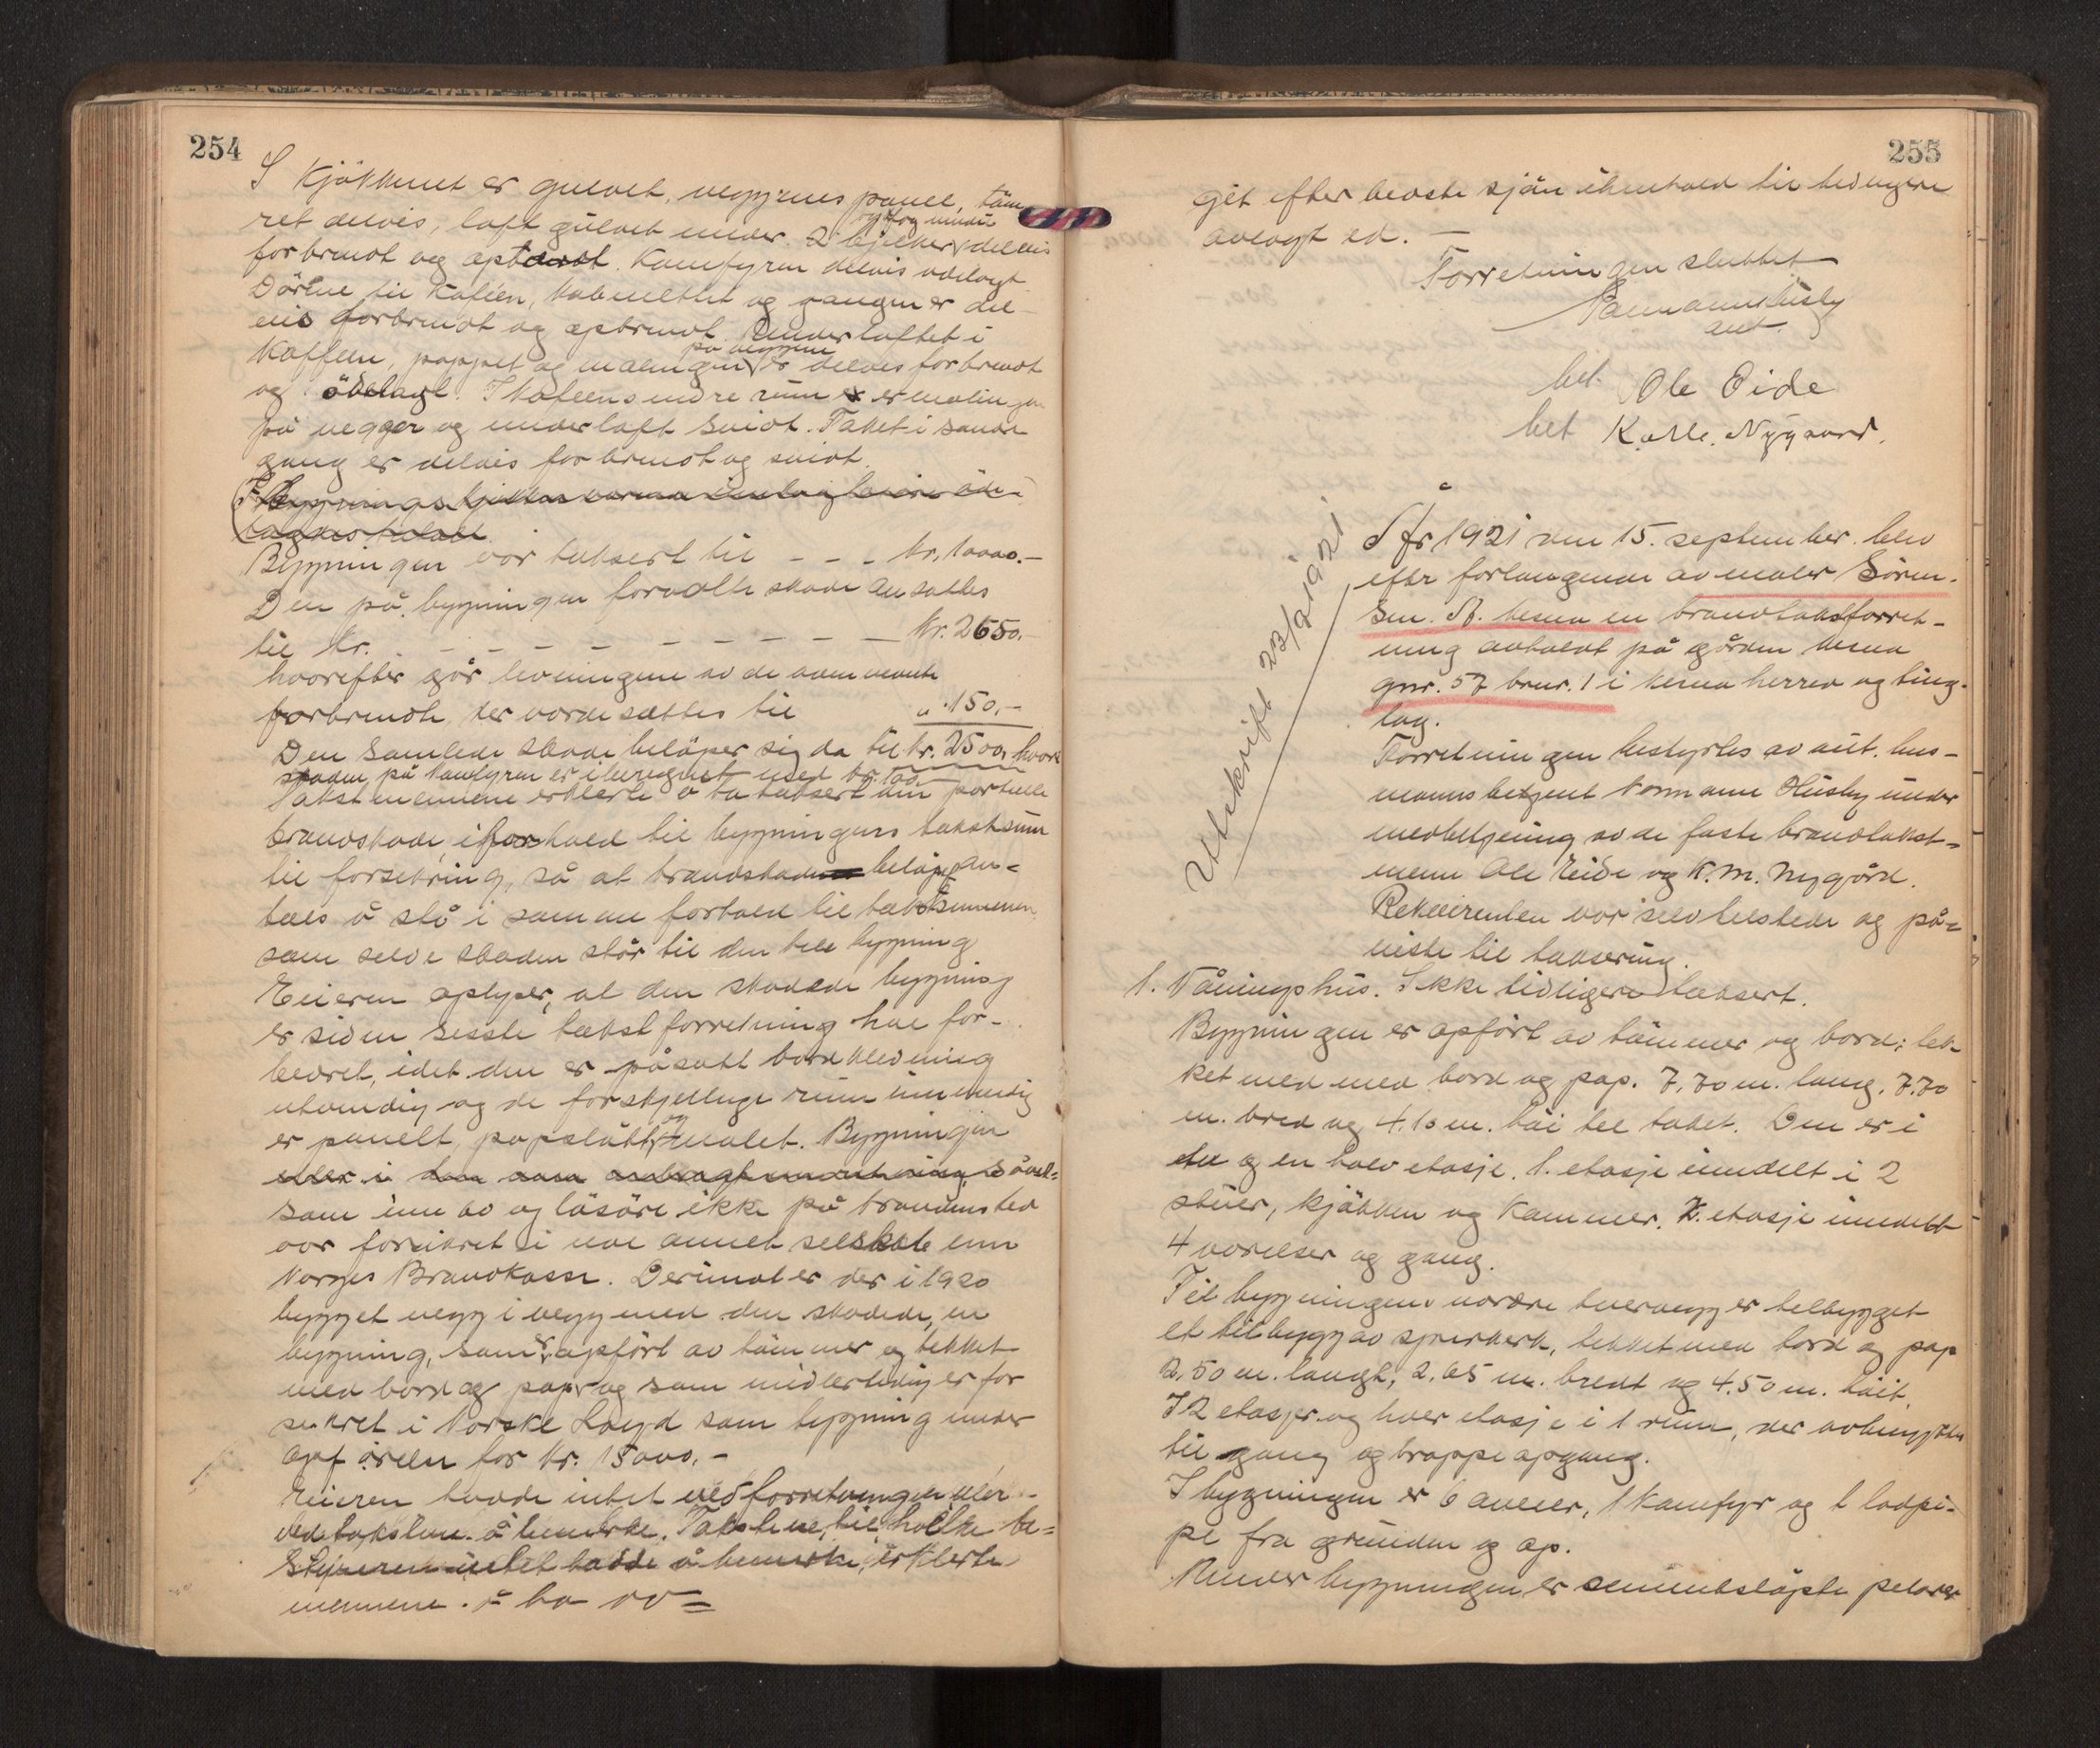 254
I kjökkenet er gulvet, veggenes panel, töm-
ret delvis, loft gulvet under. 2 bjelker delvis
forbrendt og opbrendt. Komfyren delvis ödelagt
Dörene til kaféen, kabinettet og gangen er del-
vis forbrendt og opbrendt. Underloftet i
kaffeen, pappet og malingen på veggene er delvis forbrendt
og ödelagt. I kafeens indre rum er malingen
på vegger og underloft svidt. Taket i söndre
gang er delvis forbrendt og svidt.
Bygningen var taksert til - - - kr. 10000.-
Den på bygningen forvoldte skade ansattes
til kr. - - - - - - - - - kr. 2650.
hvorefter går levningene av de nevnte
forbrendte, der verdsættes til " 150,-
Den samlede skade belöper sig da til kr. 2500, hvori
skaden på komfyren er iberegnet med kr. 100.
Takstmennene erklerte å ha taksert den partielle
brandskade i forhold til bygningens takstsum
til forsikring, så at brandskade belöpet an-
sees å stå i samme forhold til takstsummen,
som selve skaden står til den hele bygning
Eieren oplyser, at den skadede bygning
er siden sisste takstforretning ble for-
bedret, idet den er påsatt bordkledning
utvendig og de forskjellige rum innvendig
er panelt, papslått og malet. Bygningen
såvel-
som innbo og lösöre ikke på brandens tid
var forsikret i noe annet selskab enn
Norges Brandkasse. Derimot er der i 1920
bygget vegg i vegg med den skadede, en
bygning, som er opfört av tömmer og tekket
med bord og papp og som midlertidig er for
sikret i Norske Loyd som bygning under
opförelse for kr. 15000.-
Eieren hadde intet ved forretningen eller
ved taksten å bemerke. Takstene, til hvilke be-
styreren intet hadde å bemerke, erklerte
mennene å ha av=
255
git efter bedste skjön i henhold til tidligere
avlagt ed. -
Forretningen sluttet
Normann Husby
aut.
bet. Ole Eide
bet K. M. Nygaard.
Utskrift 23/9 1921
År 1921 den 15. september blev
efter forlangende av maler Sören-
sen. St. Vesna en brandtakstforret-
ning avholdt på gården Vesna
gnr. 57 brnr. 1 i Vesna herred og ting-
lag.
Forretningen bestyrtes av aut. lens-
mannsbetjent Normann Husby under
medbetjening av de faste brandtakst-
menn Ole Eide og K. M. Nygård.
Rekvirenten var selv tilstede og på-
viste til taksering.
1. Våningshus. Ikke tidligere taksert.
Bygningen er opfört av tömmer og bord; tek-
ket med med bord og pap. 7,70 m. lang, 7.70
m. bred og 4.10 m. höi til taket. Den er i
en og en halv etasje. 1. etasje inndelt i 2
stuer, kjökken og kammer. 2. etasje inndelt
4 værelser og gang.
Til bygningens nordre tvervegg er tilbygget
et tilbygg av spirverk, tekket med bord og pap
2.50 m. langt, 2.65 m. bredt og 4.50 m. höit.
I 2 etasjer og hver etasje i 1 rum, der avbenyttes
til gang og trappeopgang.
I bygningen er 6 ovner, 1 komfyr og 1 lodpi-
pe fra grunden og op.
Under bygningen er sementstöpte pelarer